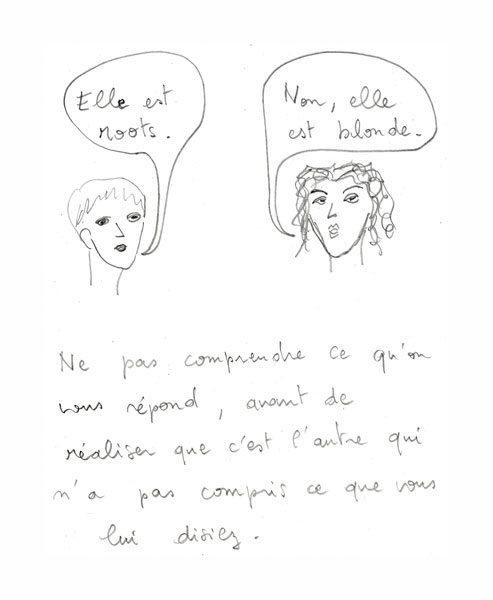 Elle est
roots.
Non, elle
est blonde.
Ne pas comprendre ce qu'on
vous répond, avant de
réaliser que c'est l'autre qui
n'a pas compris ce que vous
lui disiez.